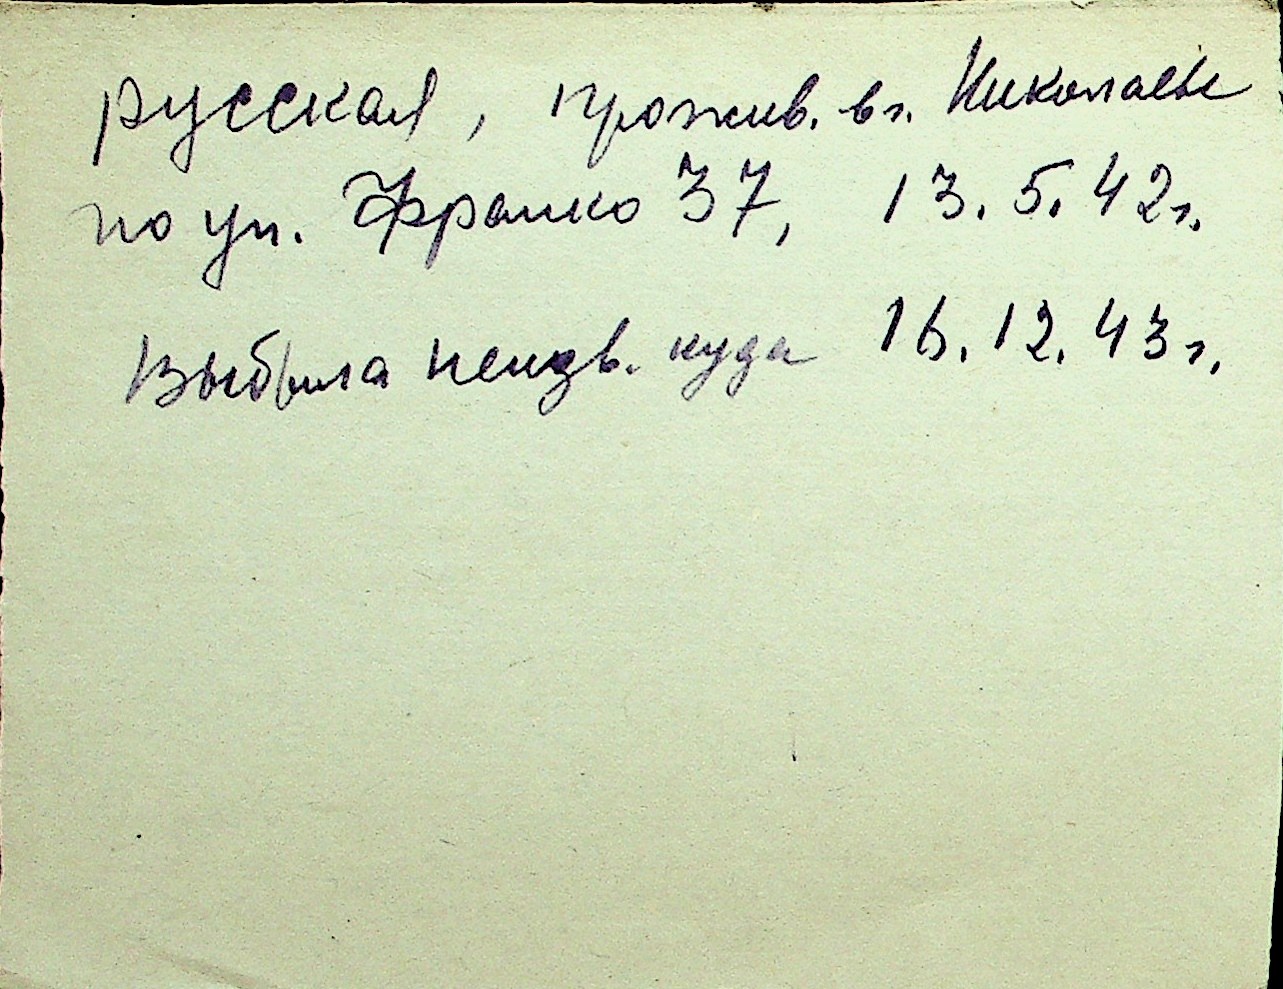 русская, прожив. в г. Николаеве
по ул. Франко 37, 13.5.42 г.
Выбыла неизв. куда 16.12.43 г.